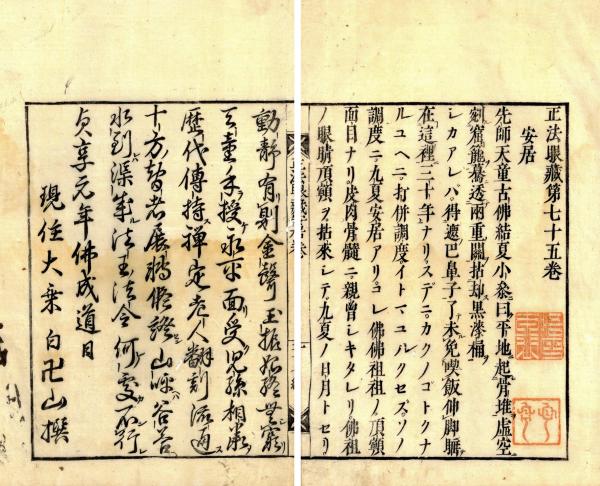 正法眼藏第七十五卷
安居
先師天童古佛結夏小參曰平地起骨堆虛空
剜窟籠驀透兩重關拈却黑漆桶
シカアレバ得遮巴鼻子了未免喫飯伸脚睡
在這裡三十年ナリスデニカクノゴトクナ
ルユヘニ打併調度イトマユルクセズソノ
調度ニ九夏安居アリコレ佛佛祖祖ノ頂𩕳
面目ナリ皮肉骨髓ニ親曾シキタレリ佛祖
ノ眼睛頂𩕳ヲ拈來シテ九夏ノ日月トセリ
動靜有則金聲玉振始終無窮
天童手授永平面受兒孫相
歷代傳持禪定老人翻刻流通
十方老展山呼谷答
水到渠成法王法令何處不行
貞享元年佛成道日
現任大乘白卍山撰